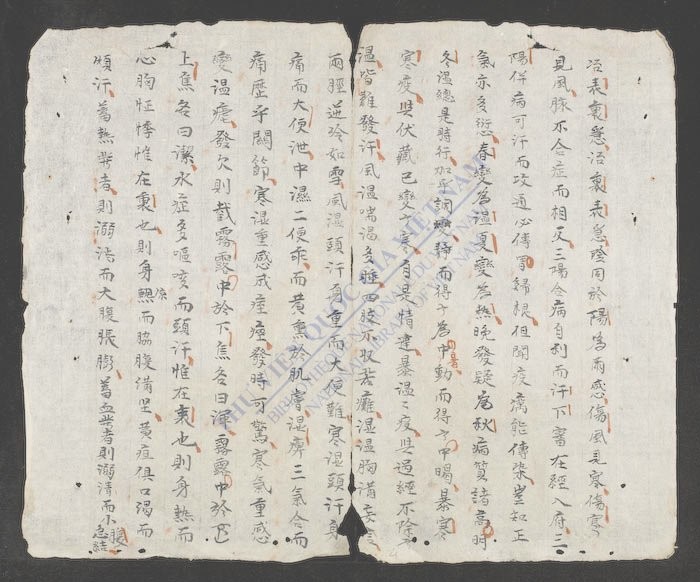 治表裏急治裏表急證同於陽為兩感傷風見寒傷寒
見風脉不合症而相反三陽合病自利而汗下審在經入府三
陽併病可汗而攻通必傳胃婦 但聞疫癘能傳染豈知正
氣亦多愆春變為温夏變為熱晚發疑為秋病質諸高明
冬温總是時行 調 静而得之為中動而得之中暍暴寒
中暑
寒疫與伏藏已變之寒有是情違暴温温疫與過經不除
温皆難發汗風温喘渴多睡四肢不收若癱湿温胸満妄言
兩脛逆冷如雪風湿頭汗身重而大便難寒湿頭汗身
痛而大便泄中濕二便乖而黄熏於肌膚湿痹三氣合而
痛歷乎關節寒湿重感成痙痙發時可驚寒氣重感
變温瘧發久則戰霧露中於下焦名曰渾霧露中於
上焦名曰潔水症多嘔咳而頭汗惟在裏也則身熱而
心胸怔悸惟在裏也則身 而脇腹滿坚黄疸俱口渴而
頭汗蓄熱 者則溺澁而大腹脹膨蓄血 者則溺清而小腹
急結
THU VIEN QUOC GIA VIET NAM
BIBLIOTHEQUE NATIONALE DU VIETNAM
NATIONAL LIBRARY OF VIETNAM